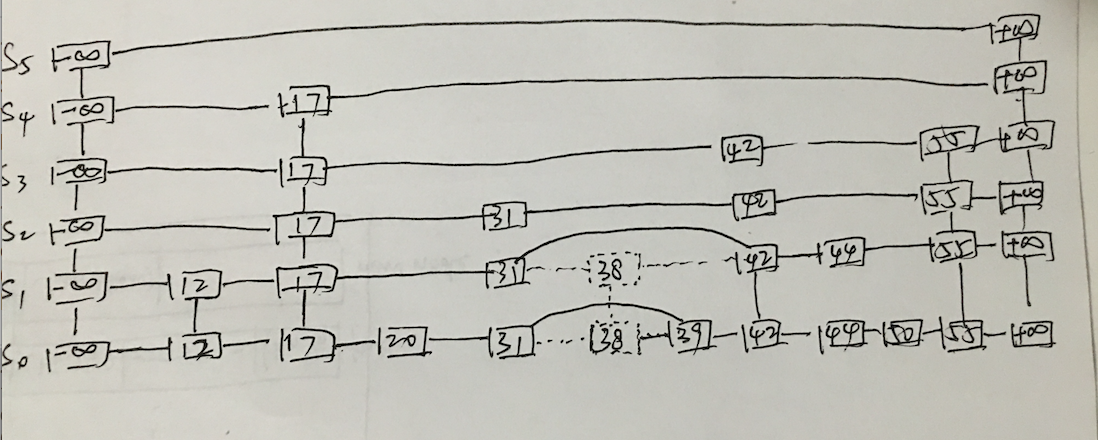 S5 -∞ +∞
S4 -∞ 17 +∞
S3 -∞ 17 42 55 +∞
S2 -∞ 17 31 42 55 +∞
S1 -∞ 12 17 31 38 42 44 55 +∞
S0 -∞ 12 17 20 31 38 39 42 44 50 55 +∞